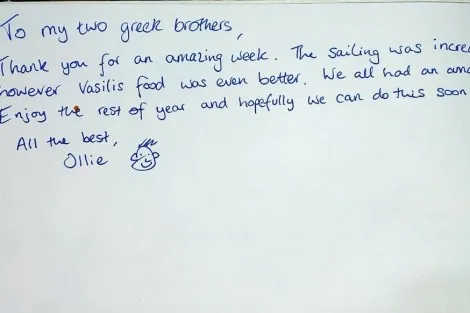 To my two greek brothers,
Thank you for an amazing week. The sailing was incre
however Vasilis food was even better. We all had an ama
Enjoy the rest of year and hopefully we can do this soon
All the best,
Ollie